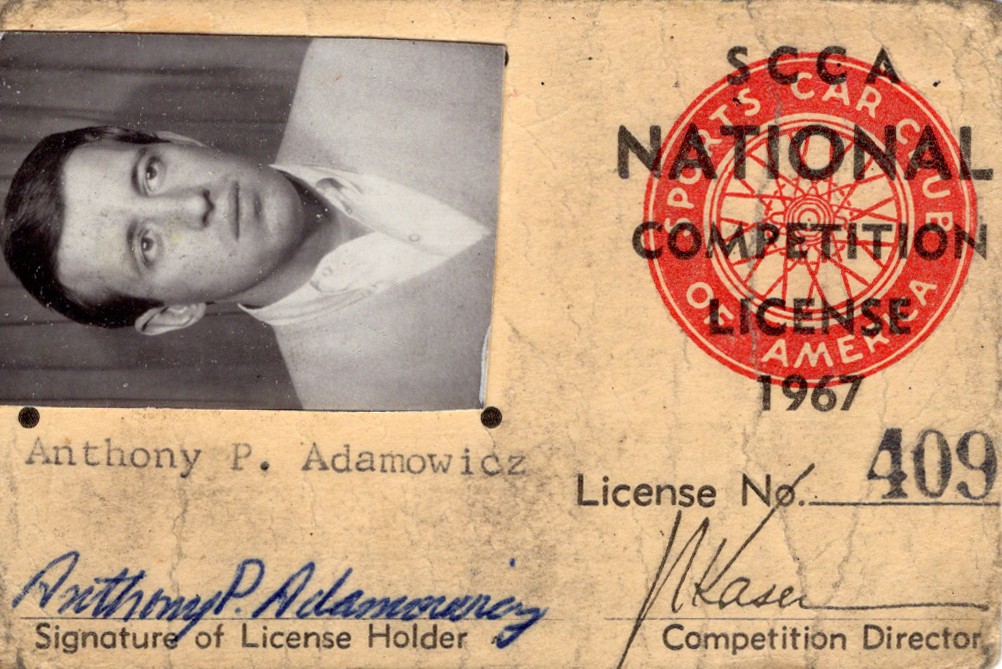 SCCA
NATIONAL
COMPETITION
LICENSE
1967
SPORTS CAR CLUB
OF AMERICA
Anthony P. Adamowicz
License No. 409
Anthony P. Adamowicz
Signature of License Holder
Kaser
Competition Director